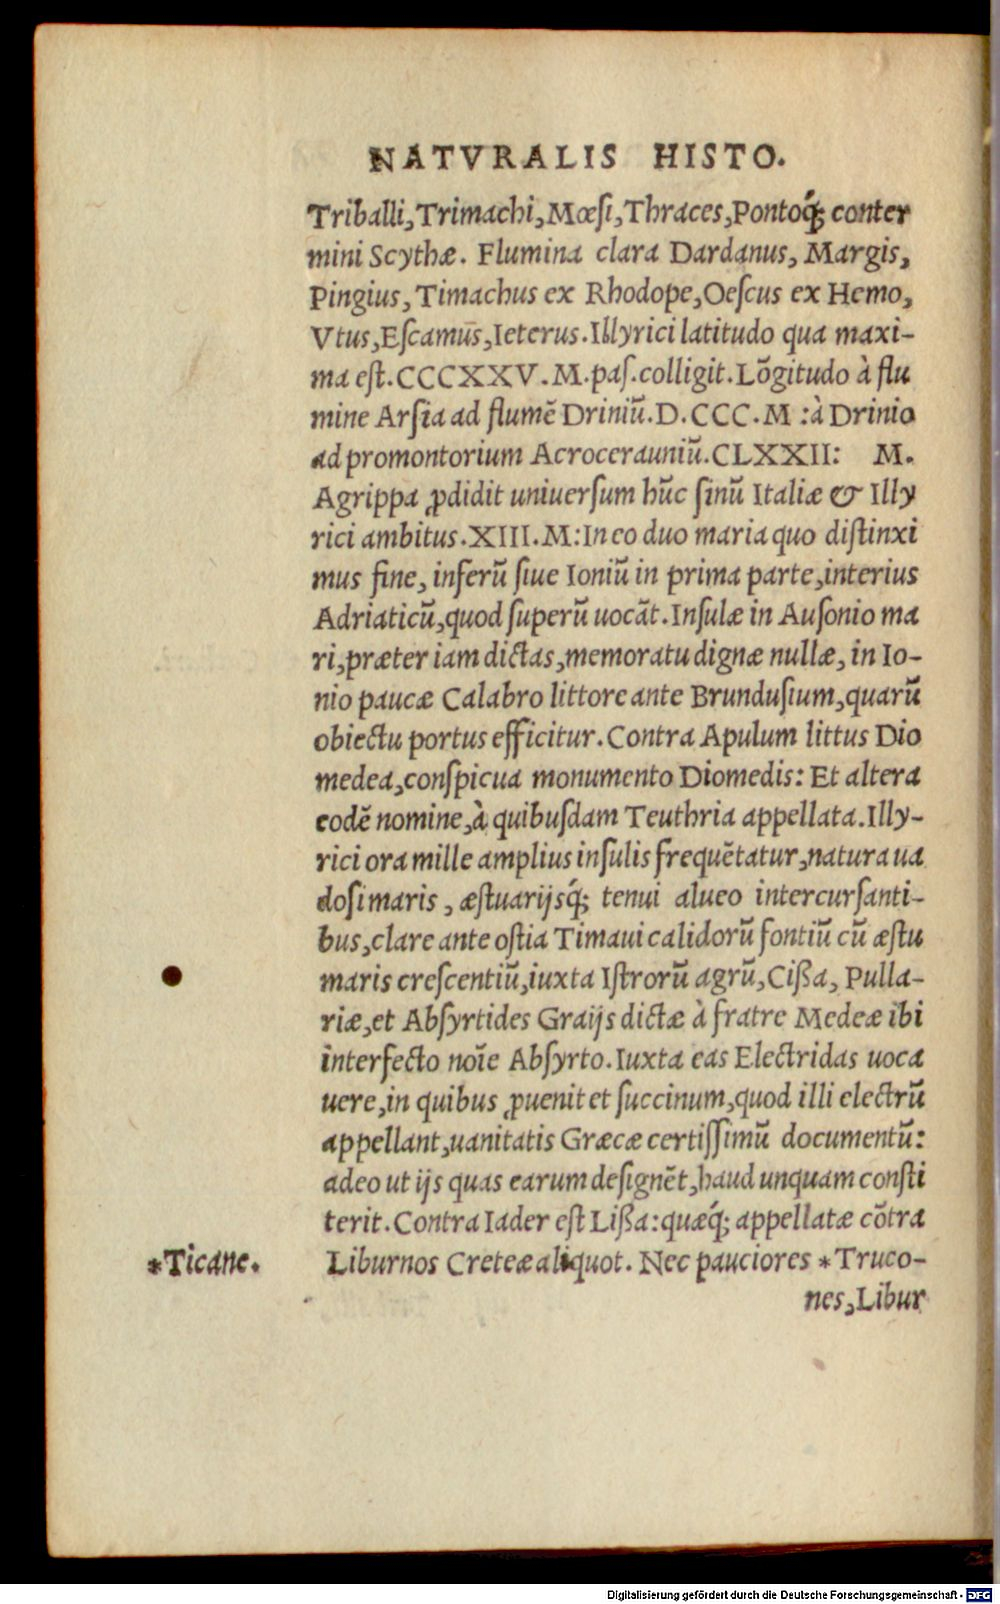 NATVRALIS HISTO.
Triballi, Trimachi, Mœsi, Thraces, Pontoq́; conter
mini Scythæ. Flumina clara Dardanus, Margis,
Pingius, Timachus ex Rhodope, Oescus ex Hemo,
Vtus, Escamūs, Ieterus. Illyrici latitudo qua maxi-
ma est. CCCXXV. M. pas. colligit. Lōgitudo à flu
mine Arsia ad flumē Driniū. D. CCC. M : à Drinio
ad promontorium Acrocerauniū. CLXXII: M.
Agrippa ꝓdidit uniuersum hūc sinū Italiæ & Illy
rici ambitus. XIII. M: In eo duo maria quo distinxi
mus fine, inferū siue Ioniū in prima parte, interius
Adriaticū, quod superū uocāt. Insulæ in Ausonio ma
ri, præter iam dictas, memoratu dignæ nullæ, in Io-
nio paucæ Calabro littore ante Brundusium, quarū
obiectu portus efficitur. Contra Apulum littus Dio
medea, conspicua monumento Diomedis: Et altera
eodē nomine, à quibusdam Teuthria appellata. Illy-
rici ora mille amplius insulis frequētatur, natura ua
dosi maris, æstuarijsq́; tenui alueo intercursanti-
bus, clare ante ostia Timaui calidorū fontiū cū æstu
maris crescentiū, iuxta Istrorū agrū, Cißa, Pulla-
riæ, et Absyrtides Graijs dictæ à fratre Medeæ ibi
interfecto noīe Absyrto. Iuxta eas Electridas uoca
uere, in quibus ꝓuenit et succinum, quod illi electrū
appellant, uanitatis Græcæ certissimū documentū:
adeo ut ijs quas earum designēt, haud unquam consti
terit. Contra Iader est Lißa: quæq́; appellatæ cōtra
Liburnos Creteæ aliquot. Nec pauciores *Truco-
*Ticane.
nes, Libur
Digitalisierung gefördert durch die Deutsche Forschungsgemeinschaft - DFG